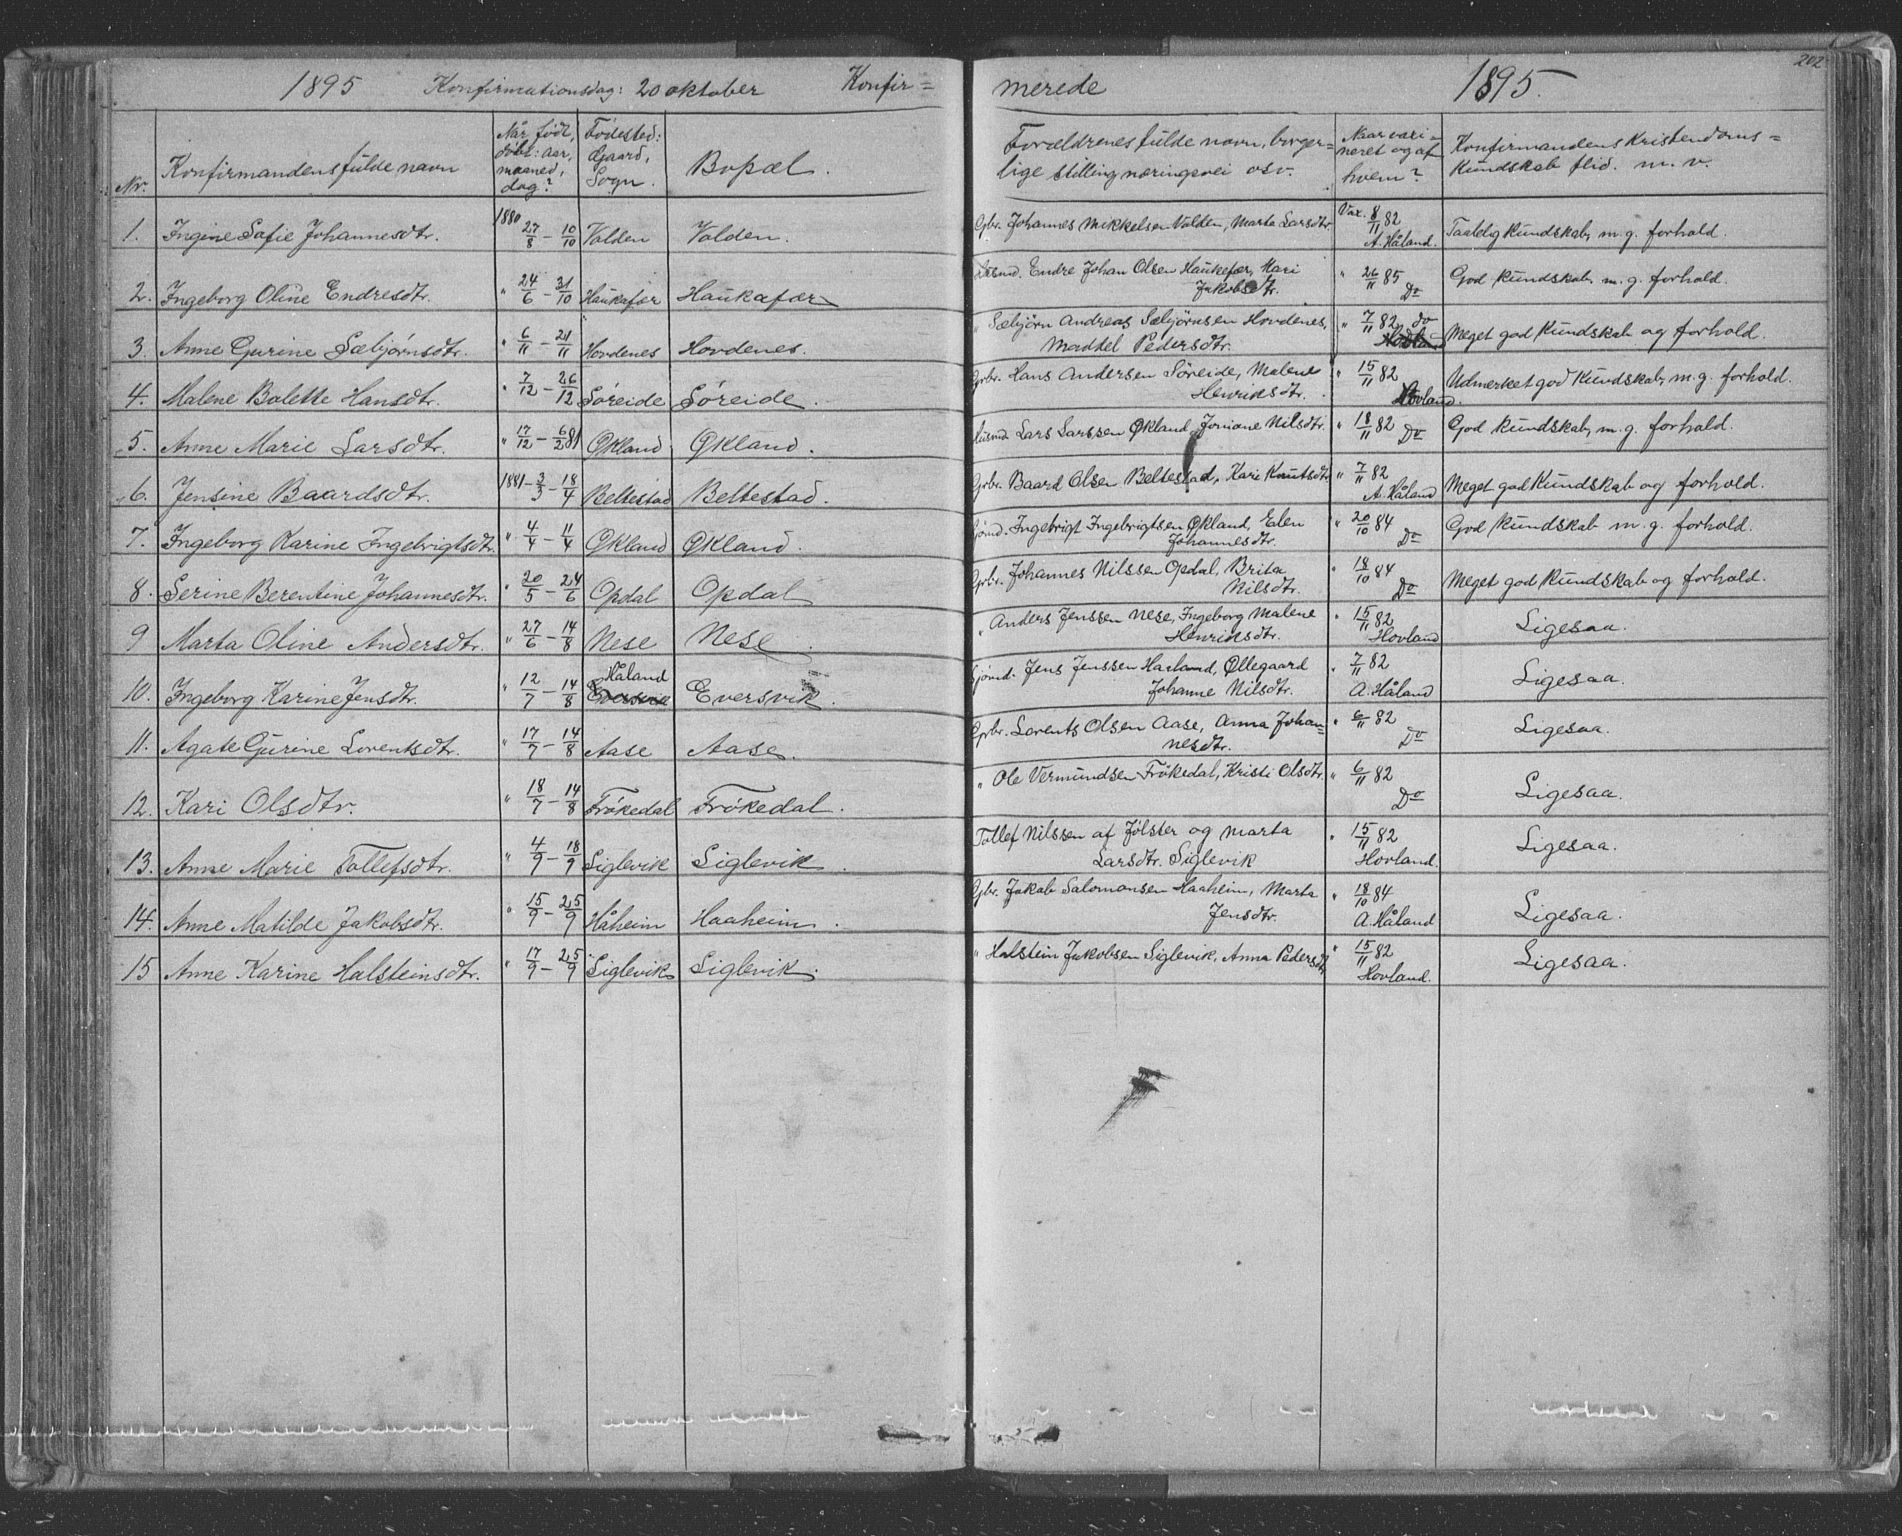 1895 Konfirmationsdag: 20 oktober Konfir=
merede 1895. 202
Nr. Konfirmandens fulde navn
Når født, døbt: aar, maaned, dag?
Fødested: Gaard, Sogn.
Bopæl.
Forældrenes fulde navn, borger=
lige stilling næringsvei osv.
Naar vaxi=
neret og af
hvem?
Konfirmandens Kristendoms=
Kundskab flid. m. v.
1. Ingine Sofie Johannesdtr. 1880 27/8 – 10/10 Valden Valden. Gbr. Johannes Mikkelsen Valden, Marta Larsdtr. Vax. 8/11 82 A. Håland. Taalelg Kundskab, m. g. forhold.
2. Ingeborg Oline Endresdtr. " 24/6 – 31/10 Haukafær Haukafær Husmd. Endre Johan Olsen Haukefær, Mari
Jakobsdtr. " 26/11 85 Do God Kundskab, m. g. forhold.
3. Anne Gurine Sæbjørnsdtr. " 6/11 – 21/11 Hovdenes Hovdenes. " Sæbjörn Andreas Sæbjörnsen Hovdenes,
Maddel Pedersdtr. " 7/11 82 do Meget god Kundskab og forhold.
4. Malene Bolette Hansdtr. " 7/12 – 26/12 Søreide Søreide. Gbr. Hans Andersen Søreide, Malene
Henriksdtr. " 15/11 82 Hovland. Udmerket god Kundskab, m. g. forhold.
5. Anne Marie Larsdtr. " 17/12 – 6/2 81 Økland Økland. Husmd Lars Larssen Økland, Joniane Nilsdtr. " 18/11 82 Do God Kundskab, m. g. forhold.
6. Jensine Baardsdtr. 1881 – 3/3 – 18/4 Beltestad Beltestad. Gbr. Baard Olsen Beltestad, Kari Knutsdtr " 7/11 82 A. Håland Meget god Kundskab og forhold.
7. Ingeborg Karine Ingebrigtsdtr. " 4/4 – 11/4 Økland Økland. Gjömd. Ingebrigt Ingebrigtsen Økland, Elen
Johannesdtr. " 20/10 84 Do God Kundskab m. g. forhold.
8. Serine Berentine Johannesdtr. " 20/5 – 24/6 Opdal Opdal Gbr. Johannes Nilssen Opdal, Brita
Nilsdtr. " 18/10 84 Do Meget god Kundskab og forhold.
9 Marta Oline Andersdtr. " 27/6 – 14/8 Nese Nese. " Anders Jenssen Nese, Ingeborg Malene
Henriksdtr. " 15/11 82 Hovland Ligesaa.
10. Ingeborg Karine Jensdtr. " 12/7 – 14/8 Håland Eversvik Eversvik. Gjömd. Jens Jenssen Haaland, Øllegaard
Johanne Nilsdtr. " 7/11 82 A. Håland Ligesaa.
11. Agate Gurine Lorentsdtr. " 17/7 – 14/8 Aase Aase. Gbr. Lorents Olsen Aase, Anna Johan=
nesdtr. " 6/11 82 Do Ligesaa.
12. Kari Olsdtr. " 18/7 – 14/8 Frökedal Frökedal. " Ole Vermundsen Frökedal, Kristi Olsdtr. " 6/11 82 Do Ligesaa.
13. Anne Marie Tollefsdtr. " 4/9 – 18/9 Siglevik Siglevik. Tollef Nilssen af Jölster og Marta
Larsdtr. Siglevik " 15/11 82 Hovland. Ligesaa.
14. Anne Matilde Jakobsdtr. " 15/9 – 25/9 Håheim Haaheim. Gbr. Jakob Salomonsen Haaheim, Marta
Jensdtr. " 18/10 84 A. Håland Ligesaa.
15 Anne Karine Halsteinsdtr. " 17/9 – 25/9 Siglevik Siglevik. " Halstein Jakobsen Siglevik, Anna Pedersdtr. " 15/11 82 Hovland. Ligesaa.